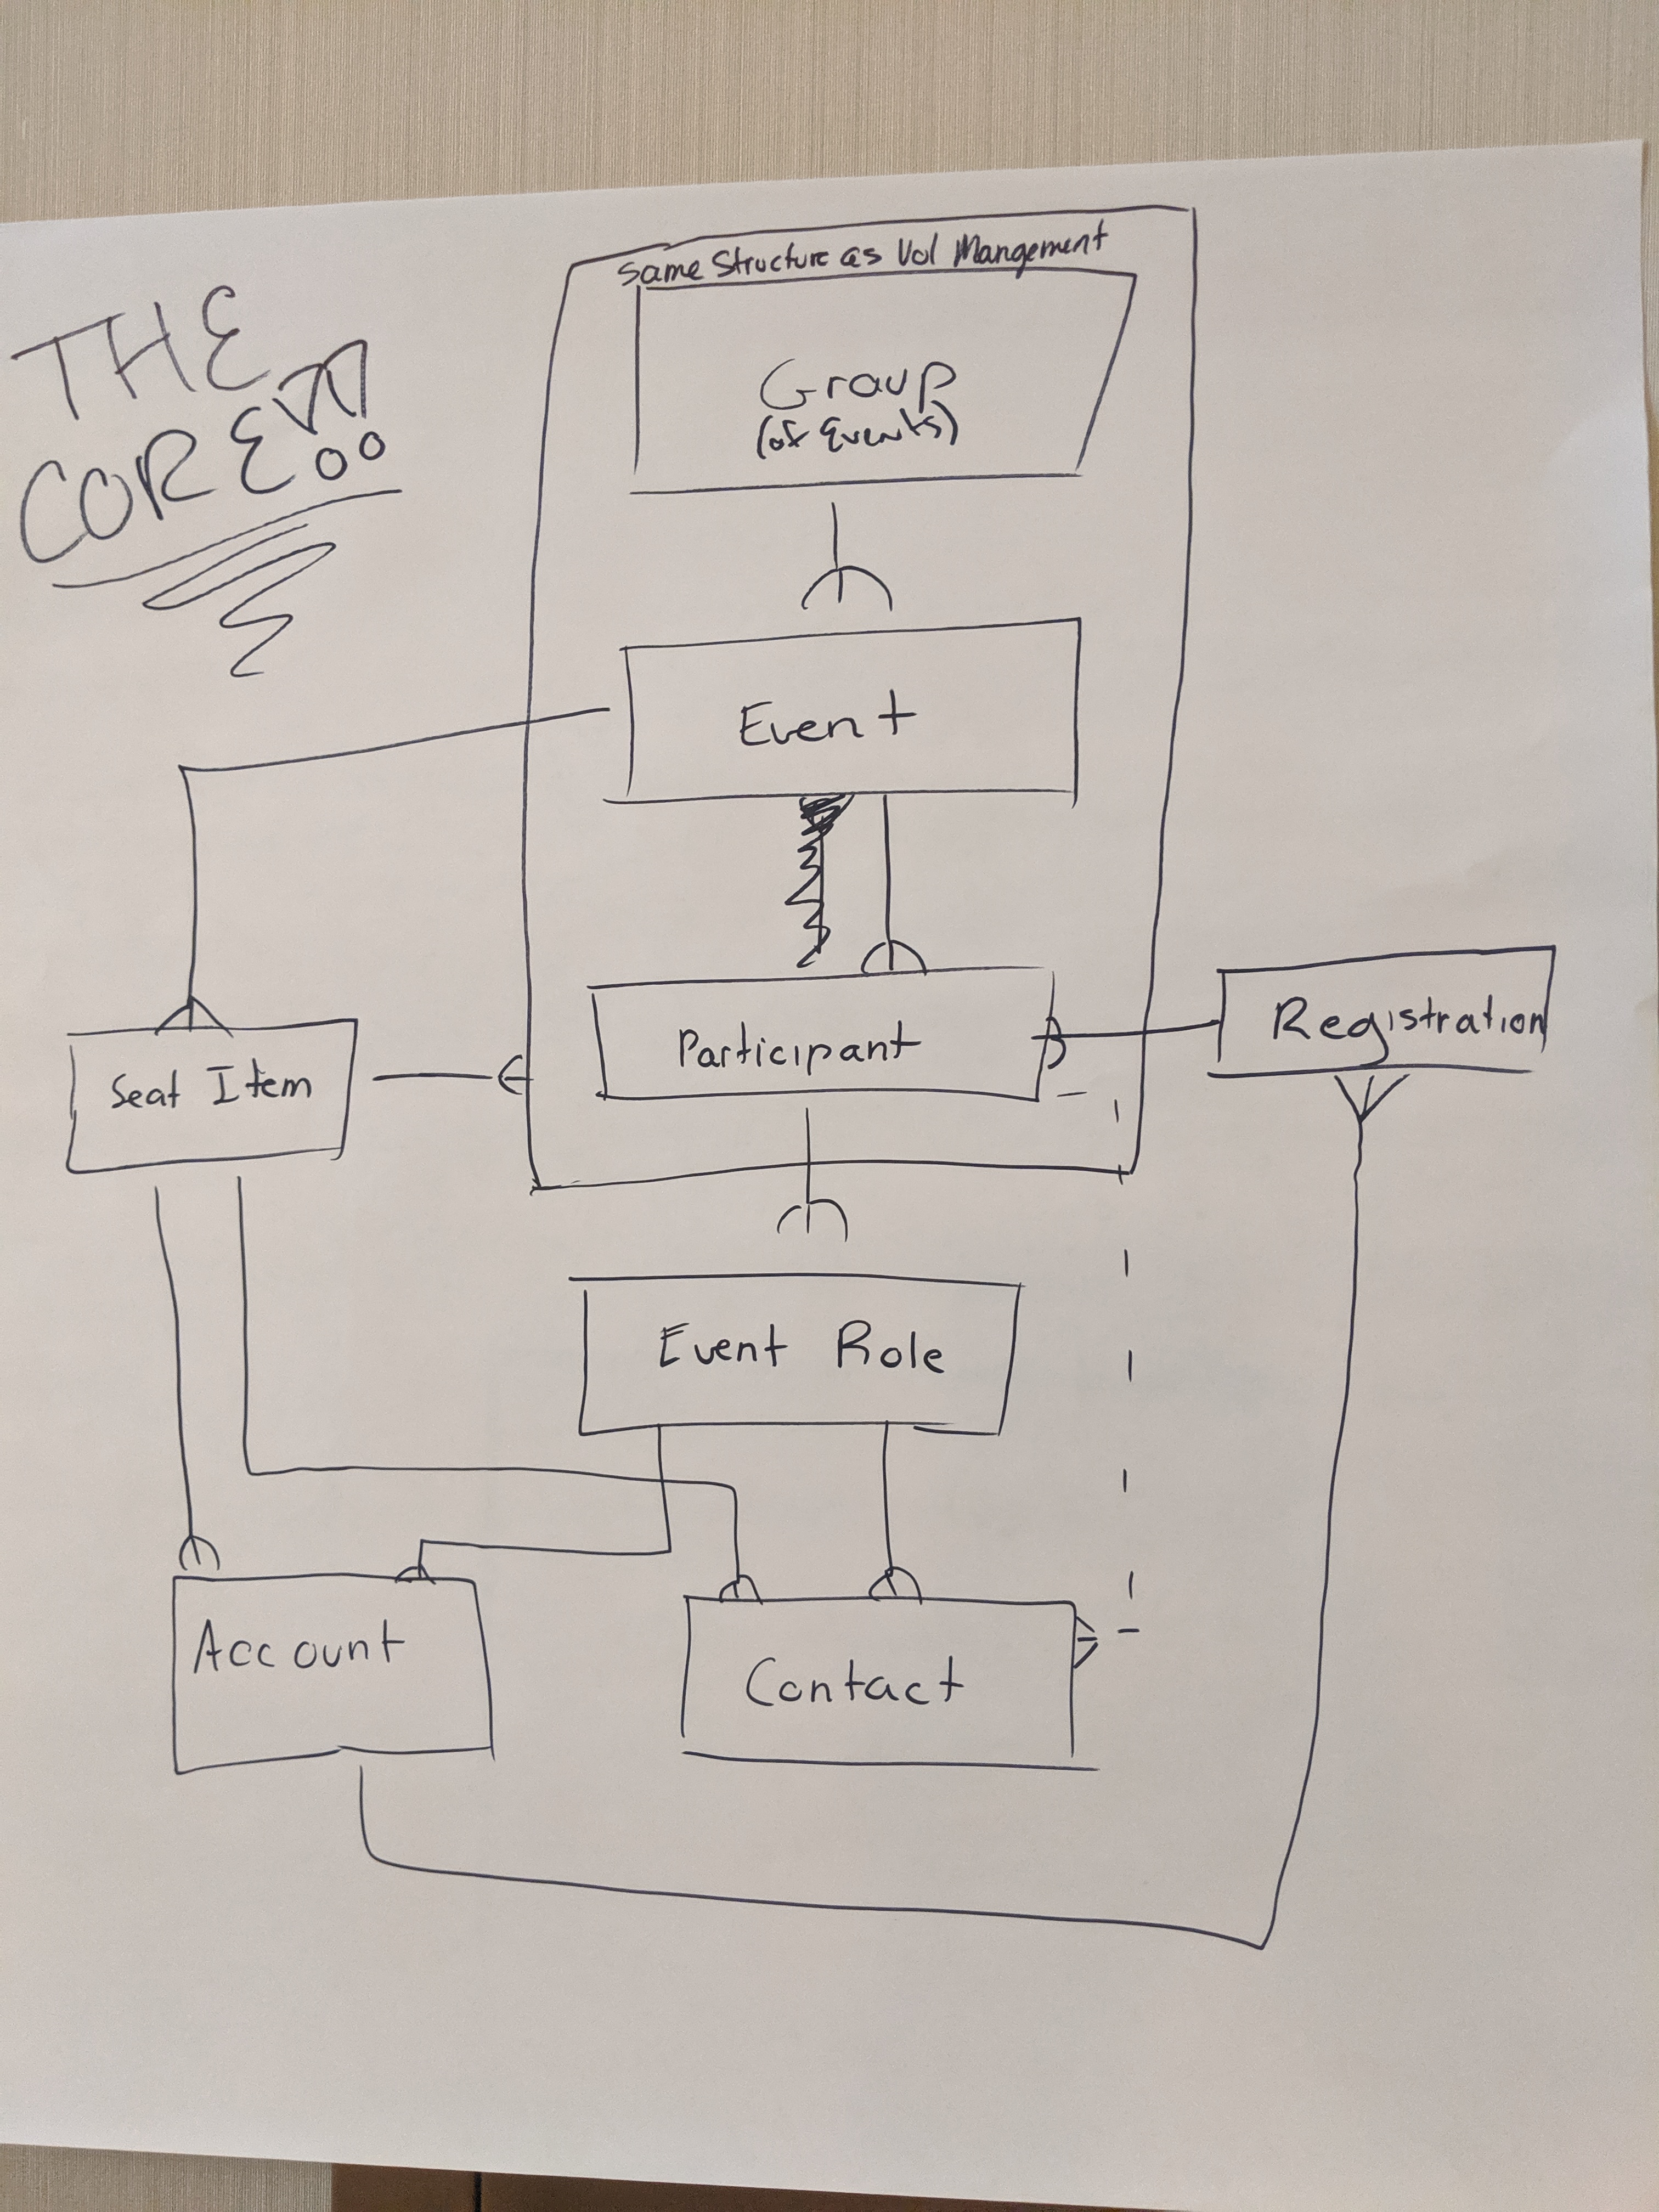 THE
CORE!!
Same Structure as Vol Mangement
Group
(of Events)
Event
Participant
Registration
Seat Item
Event Role
Account
Contact